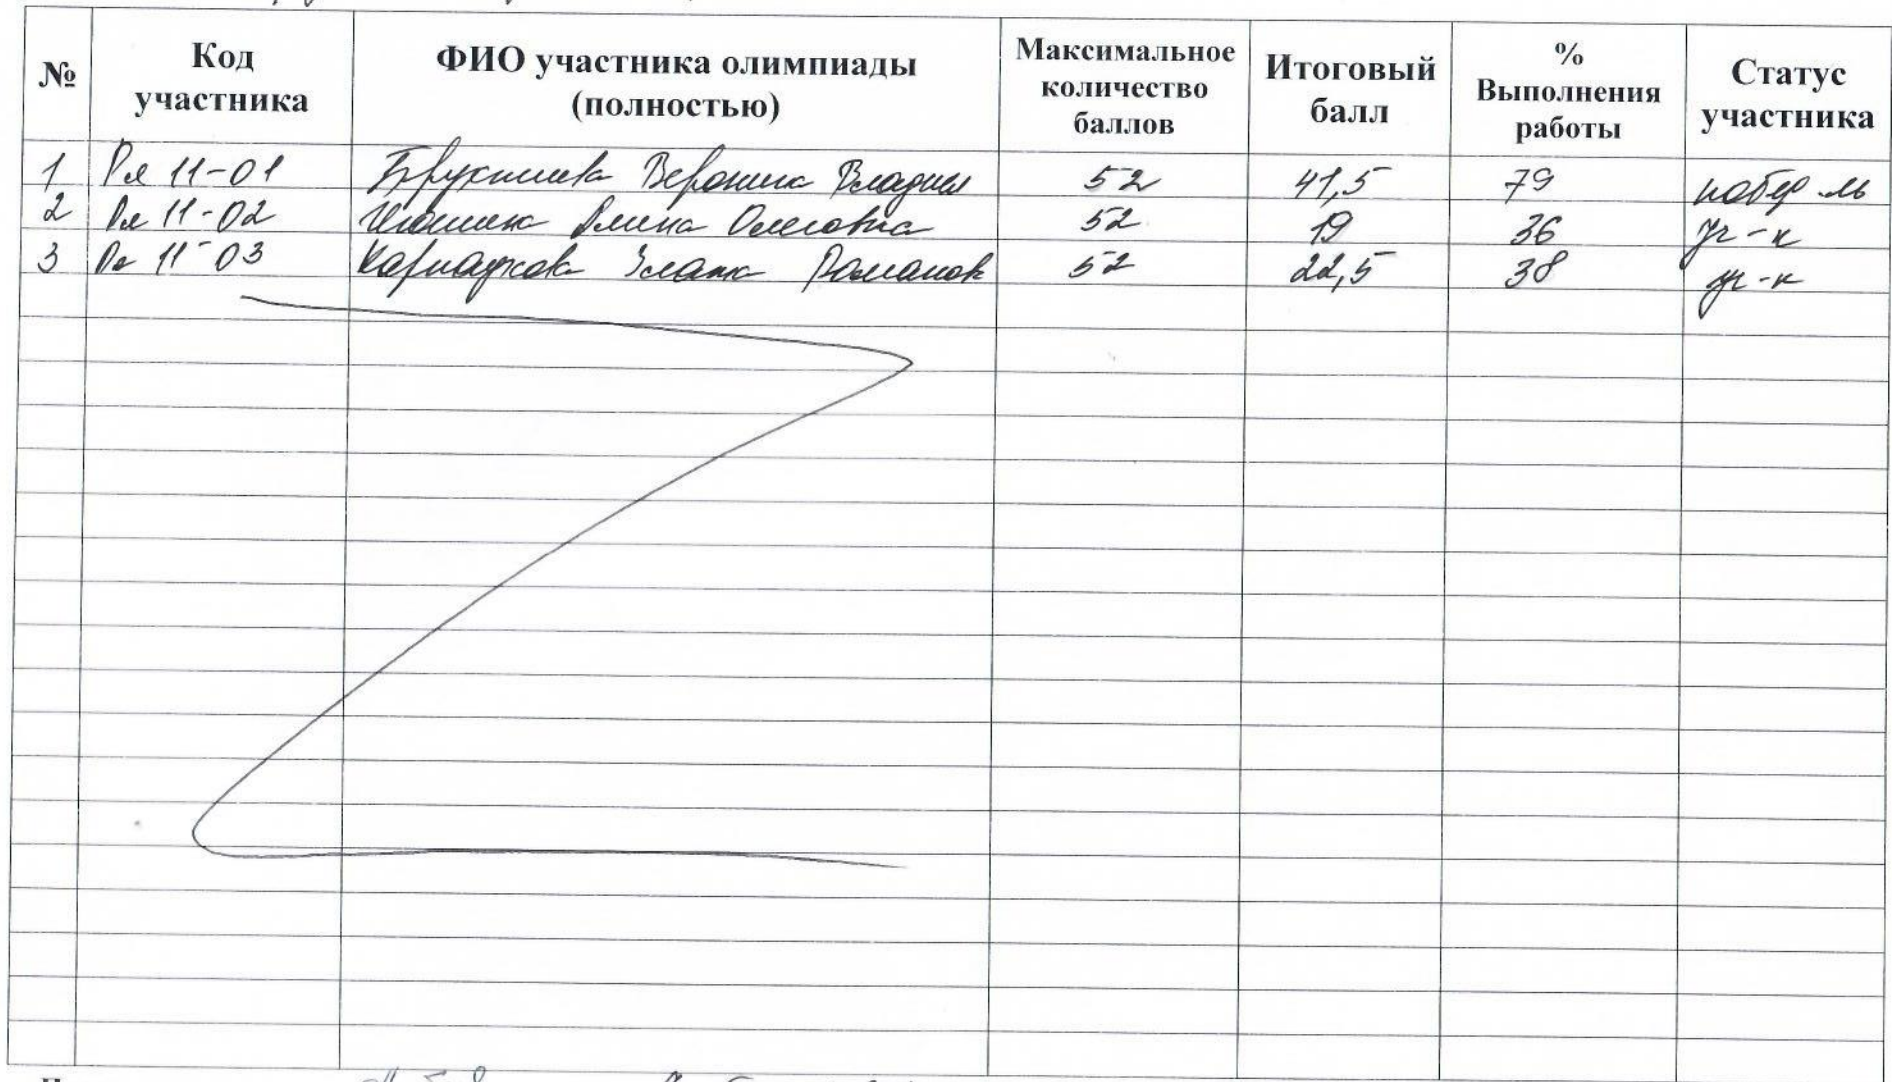 № Код участника ФИО участника олимпиады (полностью) Максимальное количество баллов Итоговый балл % Выполнения работы Статус участника
1 Ря 11-01 Вероника Владим 52 41,5 79 побед-ль
2 Ря 11-02 Алина Олеговна 52 19 36 уч-к
3 Ря 11-03 Злата Романов 52 22,5 38 уч-к